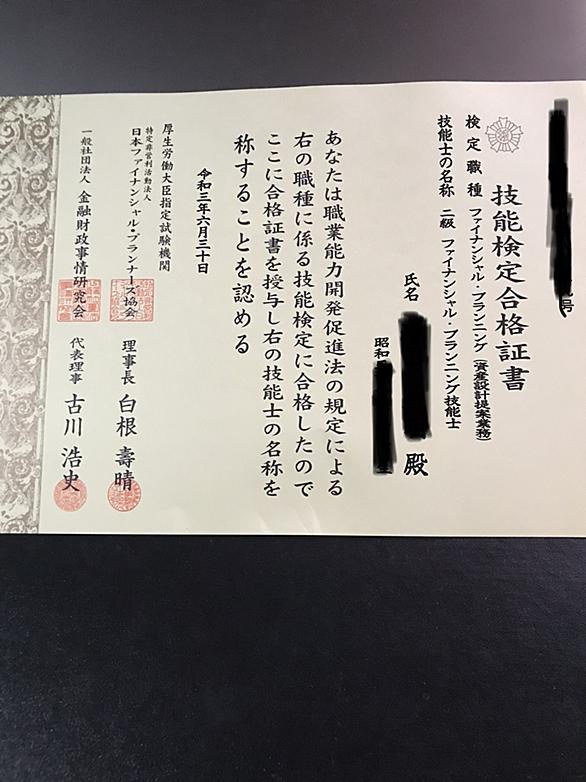 号
技能検定合格証書
検定職種 ファイナンシャル・プランニング(資産設計提案業務)
技能士の名称 二級 ファイナンシャル・プランニング技能士
氏名 殿
昭和
あなたは職業能力開発促進法の規定による
右の職種に係る技能検定に合格したので
ここに合格証書を授与し右の技能士の名称を
称することを認める
令和三年六月三十日
厚生労働大臣指定試験機関
特定非営利活動法人
日本ファイナンシャル・プランナーズ協会 理事長 白根 壽晴
一般社団法人 金融財政事情研究会 代表理事 古川 浩史